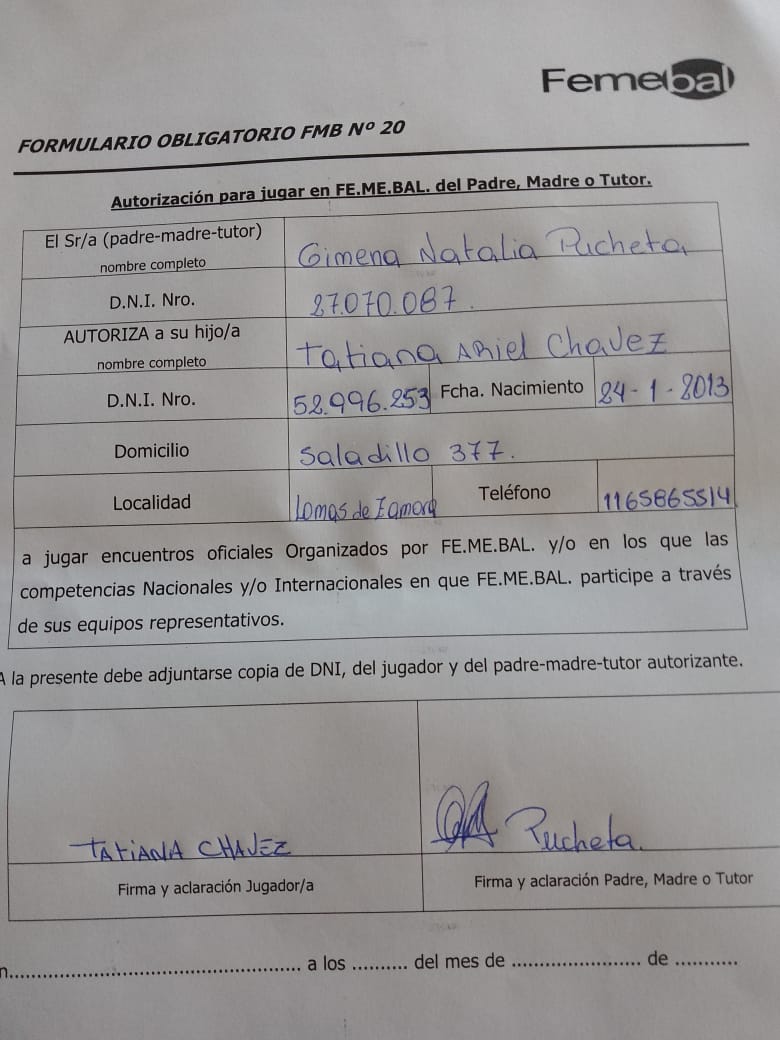 Femebal
FORMULARIO OBLIGATORIO FMB Nº 20
Autorización para jugar en FE.ME.BAL. del Padre, Madre o Tutor.
El Sr/a (padre-madre-tutor) nombre completo Gimena Natalia Pucheta
D.N.I. Nro. 27.070.087.
AUTORIZA a su hijo/a nombre completo Tatiana Ariel Chavez
D.N.I. Nro. 52.996.253 Fcha. Nacimiento 24-1-2013
Domicilio Saladillo 377.
Localidad Lomas de Zamora Teléfono 1165865514
a jugar encuentros oficiales Organizados por FE.ME.BAL. y/o en los que las
competencias Nacionales y/o Internacionales en que FE.ME.BAL. participe a través
de sus equipos representativos.
A la presente debe adjuntarse copia de DNI, del jugador y del padre-madre-tutor autorizante.
TATIANA CHAVEZ Pucheta.
Firma y aclaración Jugador/a Firma y aclaración Padre, Madre o Tutor
n.............................................. a los .......... del mes de ...................... de ...........